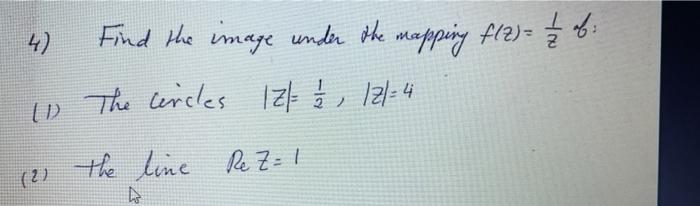 4) Find the image under the mapping f(z) = 1/z of:
(1) The circles |z| = 1/2, |z| = 4
(2) the line Re z = 1